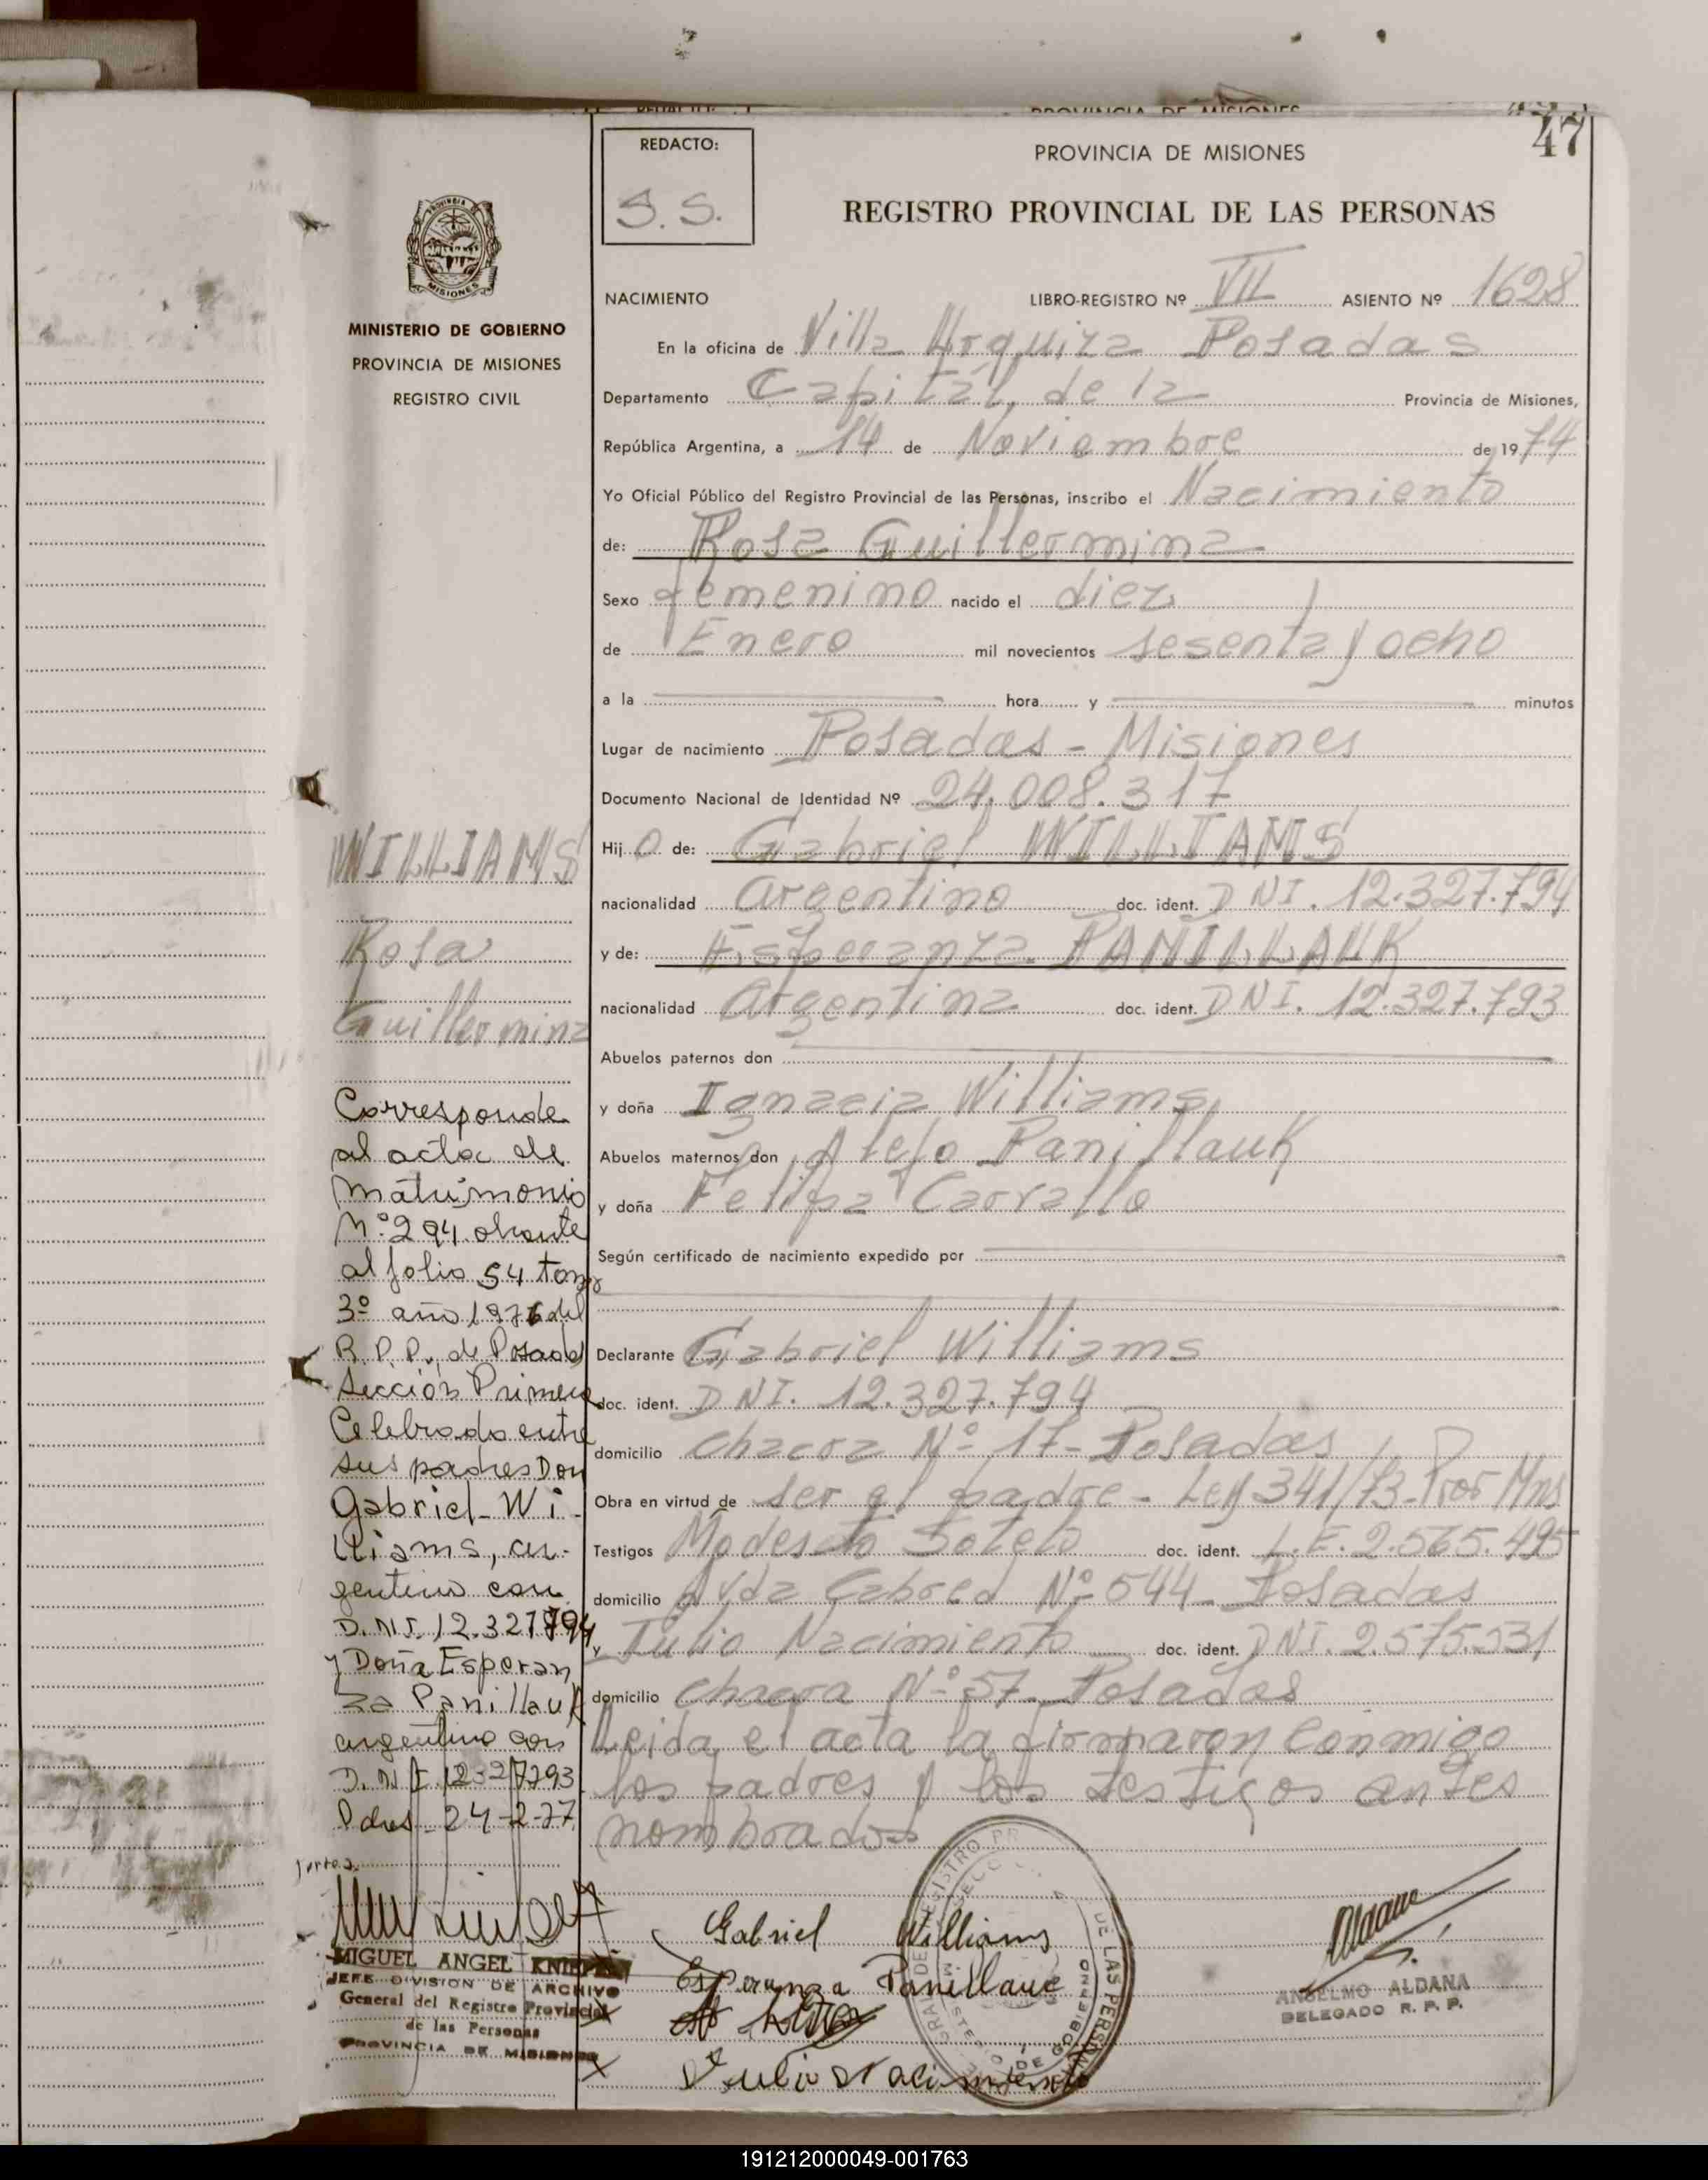 47
REDACTO:
S. S.
PROVINCIA DE MISIONES
REGISTRO PROVINCIAL DE LAS PERSONAS
PROVINCIA DE
MISIONES
MINISTERIO DE GOBIERNO
PROVINCIA DE MISIONES
REGISTRO CIVIL
NACIMIENTO LIBRO-REGISTRO Nº VII ASIENTO Nº 1628
En la oficina de Villa Urquiza Posadas
Departamento Capital, de la Provincia de Misiones,
República Argentina, a 14 de Noviembre de 1974
Yo Oficial Público del Registro Provincial de las Personas, inscribo el Nacimiento
de: Rosa Guillermina
Sexo femenino nacido el diez
de Enero mil novecientos sesenta y ocho
a la hora y minutos
Lugar de nacimiento Posadas - Misiones
Documento Nacional de Identidad Nº 24.008.317
Hij o de: Gabriel WILLIAMS
nacionalidad Argentino doc. ident. DNI. 12.327.794
y de: Esperanza PANILLAUK
nacionalidad Argentina doc. ident. DNI. 12.327.793
Abuelos paternos don
y doña Ignacia Williams,
Abuelos maternos don Alejo Panillauk
y doña Felipa Carvallo
Según certificado de nacimiento expedido por
Declarante Gabriel Williams
doc. ident. DNI. 12.327.794
domicilio chacra Nº 17- Posadas
Obra en virtud de ser el padre - Ley 341/73-
Testigos Modesto Sotelo doc. ident. L.E. 2.565.495
domicilio Avda Cabred Nº 544- Posadas
y Julio Nacimiento doc. ident. DNI. 2.575.531
domicilio chacra Nº 57- Posadas
Leida el acta la firmaron conmigo
los padres y los testigos antes
nombrados
WILLIAMS
Rosa
Guillermina
Corresponde
al acta de
matrimonio
Nº 294 obrante
al folio 54 tomo
3º año 1976 del
R.P.P., de Posadas
Sección Primera
Celebrado entre
sus padres Don
Gabriel Wi-
lliams, ar-
gentino con
D.N.I. 12.327794
y Doña Esperan
za Panillauk
argentina con
D.N.I. 12327793
Pdas 24-2-77
MIGUEL ANGEL
JEFE DIVISION DE ARCHIVO
General del Registro Provincial
de las Personas
PROVINCIA DE MISIONES
Gabriel Williams
Esperanza Panillauc
Julio Nacimiento
DE LAS PERSONAS
DE GOBIERNO
ANSELMO ALDANA
DELEGADO R. P. P.
191212000049-001763